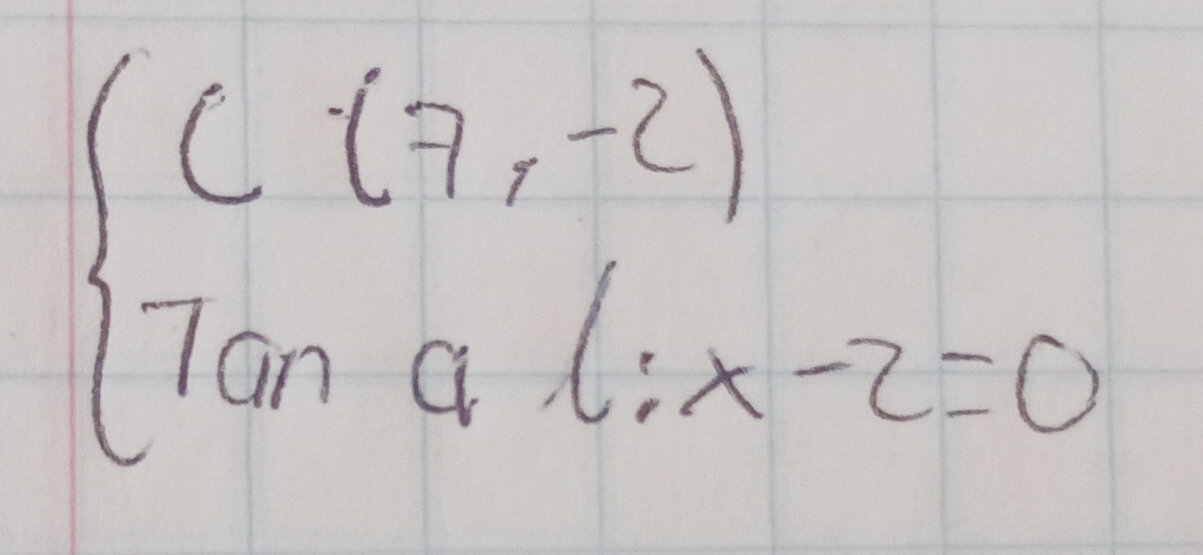 C (7, -2)
Tan a l: x - 2 = 0